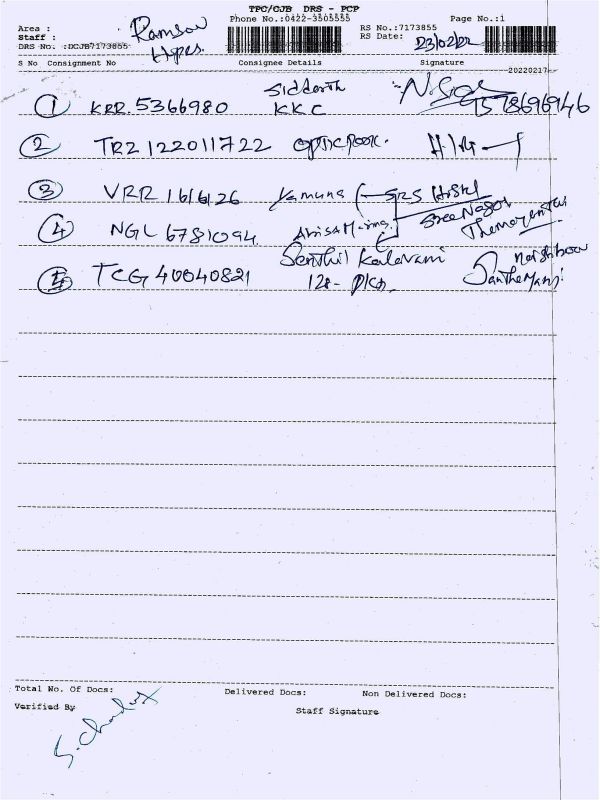 TPC/CJB DRS - PCP
Phone No.:0422-3505555 Page No.:1
Area :
Staff :
DRS No. :DCJB7173855
RS No.:7173855
RS Date: 23/02/22
S No Consignment No Consignee Details Signature
20220217
1 KRR. 5366980 Siddarth KKC 9578696946
2 TRZ 122011722
3 VRR 161626 Yamuna SRS Hostel
4 NGL 6781094 Sree Nagar
5 TCG 40040821 Senthil Kalavani
Total No. Of Docs: Delivered Docs: Non Delivered Docs:
Verified By Staff Signature